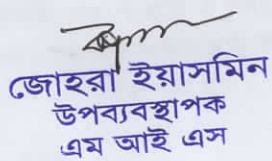 জোহরা ইয়াসমিন
উপব্যবস্থাপক
এম আই এস